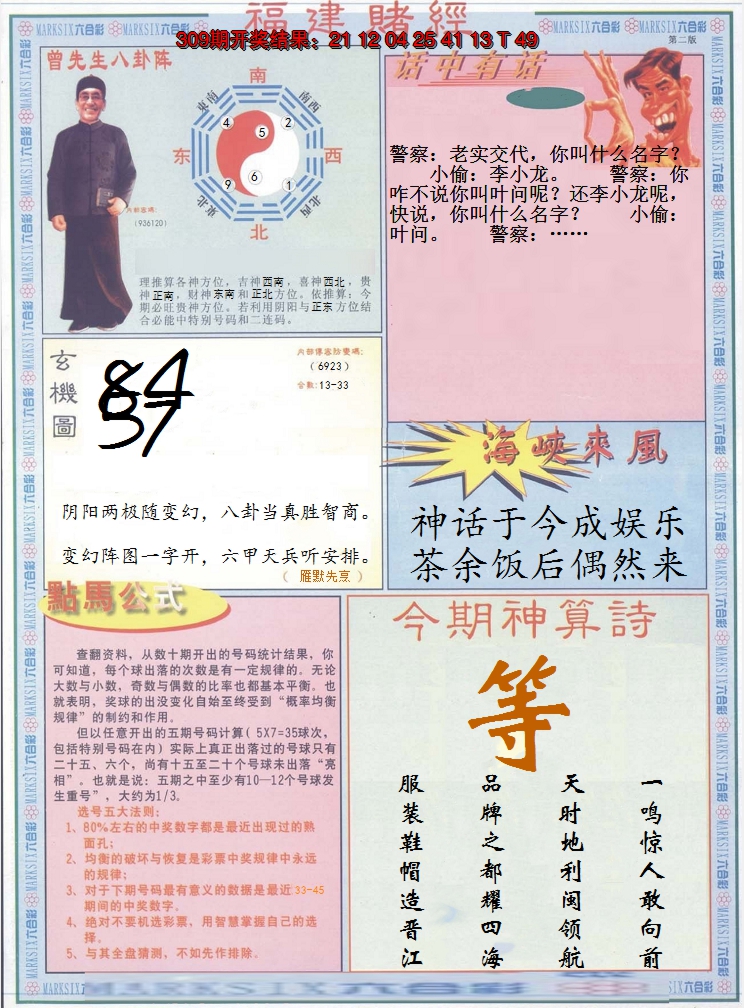 福建賭經
309期开奖结果：21 12 04 25 41 13 T 49
MARKSIX六合彩 MARKSIX六合彩 MARKSIX六合彩
MARKSIX六合彩 MARKSIX六合彩
第二版
曾先生八卦阵
南
东南
西南
4
2
5
东
西
6
9
1
东北
西北
北
内部密碼:
(936120)
理推算各神方位，吉神西南，喜神西北，贵
神正南，财神东南和正北方位。依推算：今
期必旺贵神方位。若利用阴阳与正东方位结
合必能中特别号码和二连码。
话中有话
警察：老实交代，你叫什么名字？
小偷：李小龙。 警察：你
咋不说你叫叶问呢？还李小龙呢，
快说，你叫什么名字？ 小偷：
叶问。 警察：……
玄機圖
84
67
37
内部傳器防變碼:
(6923)
合數:13-33
阴阳两极随变幻，八卦当真胜智商。
变幻阵图一字开，六甲天兵听安排。
（ 雁默先烹 ）
海峽來風
神话于今成娱乐
茶余饭后偶然来
點馬公式
查翻资料，从数十期开出的号码统计结果，你
可知道，每个球出落的次数是有一定规律的。无论
大数与小数，奇数与偶数的比率也都基本平衡。也
就表明，奖球的出没变化自始至终受到“概率均衡
规律”的制约和作用。
但以任意开出的五期号码计算( 5X7=35球次，
包括特别号码在内）实际上真正出落过的号球只有
二十五、六个，尚有十五至二十个号球未出落“亮
相”。也就是说：五期之中至少有10—12个号球发
生重号”，大约为1/3。
选号五大法则：
1、80%左右的中奖数字都是最近出现过的熟
面孔；
2、均衡的破坏与恢复是彩票中奖规律中永远
的规律；
3、对于下期号码最有意义的数据是最近33-45
期间的中奖数字。
4、绝对不要机选彩票，用智慧掌握自己的选
择。
5、与其全盘猜测，不如先作排除。
今期神算詩
等
一鸣惊人敢向前
天时地利闽领航
品牌之都耀四海
服装鞋帽造晋江